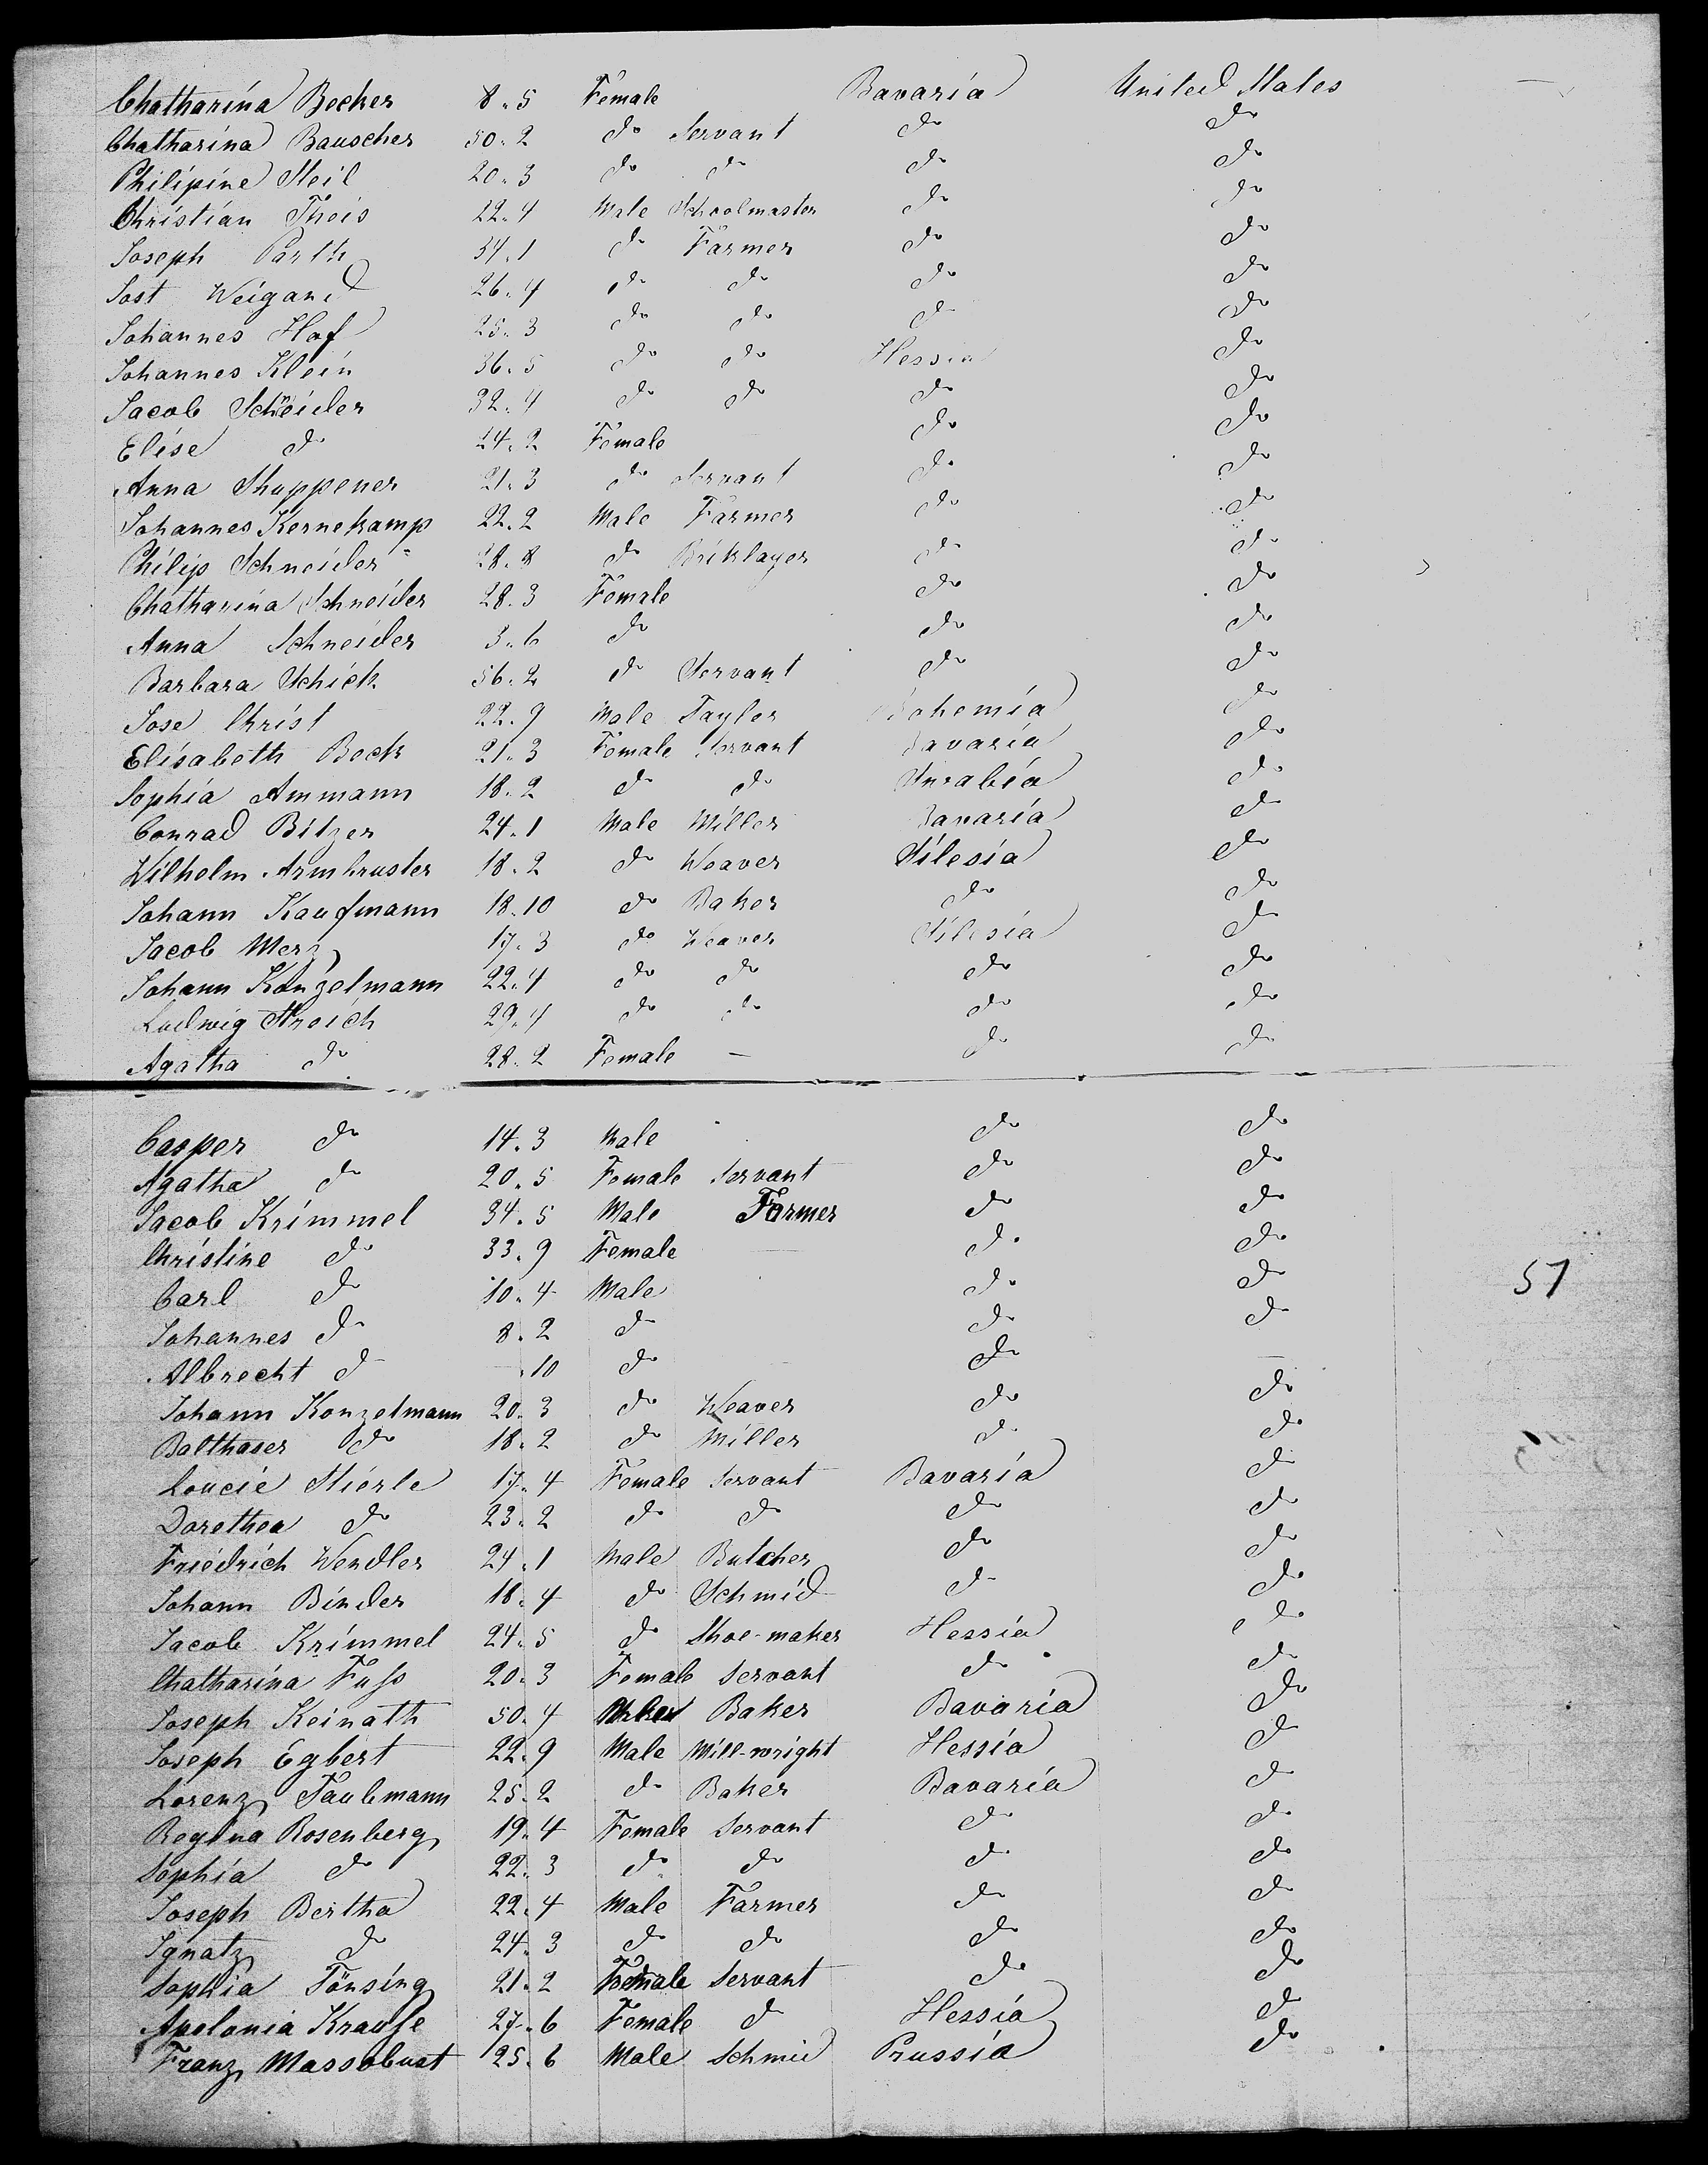 Chatharina Becker 8. 5 Female Bavaria United States
Chatharina Bauscher 50. 2 do Servant do do
Philipine Steil 20. 3 do do do do
Christian Theis 22. 4 Male Schoolmaster do do
Joseph Parth 34. 1 do Farmer do do
Jost Weigand 26. 4 do do do do
Johannes Hof 25. 3 do do do do
Johannes Klein 36. 5 do do Hessia do
Jacob Schneider 32. 4 do do do do
Elise do 24. 2 Female do do
Anna Shuppener 21. 3 do Servant do do
Johannes Kernekamp 22. 2 Male Farmer do do
Philip Schneider 28. 8 do Briklayer do do
Chatharina Schneider 28. 3 Female do do
Anna Schneider 3. 6 do do do
Barbara Schick 56. 2 do Servant do do
Jose Christ 22. 9 Male Taylor Bohemia do
Elisabeth Beck 21. 3 Female Servant Bavaria do
Sophia Ammann 18. 2 do do do
Conrad Bitzer 24. 1 Male Miller Bavaria do
Wilhelm Armbruster 18. 2 do Weaver Silesia do
Johann Kaufmann 18. 10 do Baker do do
Jacob Merz 17. 3 do Weaver Silesia do
Johann Konzelmann 22. 4 do do do do
Ludwig Streich 29. 4 do do do do
Agatha do 28. 2 Female – do do
Casper do 14. 3 Male do do
Agatha do 20. 5 Female Servant do do
Jacob Krimmel 34. 5 Male Farmer do do
Christine do 33. 9 Female do do
Carl do 10. 4 Male do do
51
Johannes do 8. 2 do do do
Albrecht do – . 10 do do –
Johann Konzelmann 20. 3 do Weaver do do
Balthaser do 18. 2 do Miller do do
Loucie Stierle 17. 4 Female Servant Bavaria do
Dorethea do 23. 2 do do do do
Friedrich Wendler 24. 1 Male Butcher do do
Johann Binder 18. 4 do Schmid do do
Jacob Krimmel 24. 5 do Shoe-maker Hessia do
Chatharina Fuſs 20. 3 Female Servant do do
Joseph Keinath 50. 4 Baker Bavaria do
Joseph Egbert 22. 9 Male Mill-wright Hessia do
Lorenz Taubmann 25. 2 do Baker Bavaria do
Regina Rosenberg 19. 4 Female Servant do do
Sophia do 22. 3 do do do do
Joseph Bertha 22. 4 Male Farmer do do
Ignatz do 24. 3 do do do do
Sophia Tönsing 21. 2 Female Servant do do
Apolonia Krauſe 27. 6 Female do Hessia do
Franz Massobust 25. 6 Male Schmid Prussia do